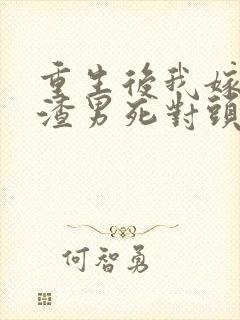 重生後我嫁
渣男死對頭
何智勇